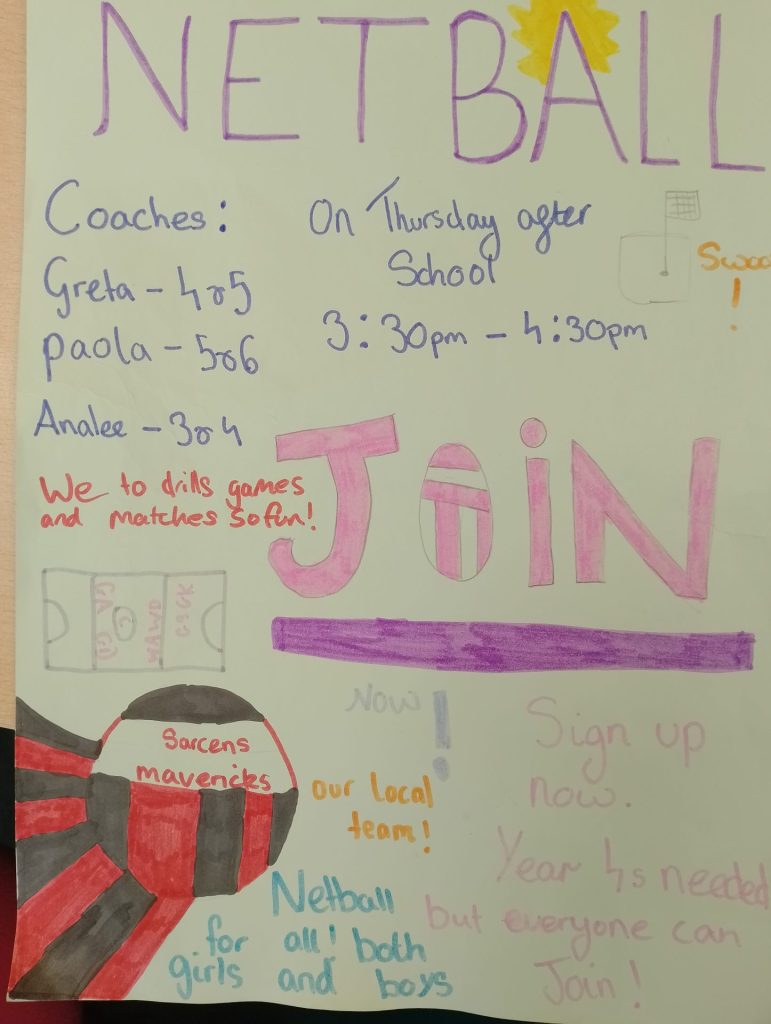 NETBALL
Coaches:
Greta - 4 or 5
paola - 5 or 6
Analee - 3 or 4
On Thursday after
School
3:30pm - 4:30pm
Swoo
!
We to drills games
and matches so fun!
JOiN
GA GD
C
WA WD
GS GK
Now!
Sarcens
mavericks
our Local
team!
Sign up
now.
Year 4s needed
but everyone can
Join!
Netball
for all! both
girls and boys